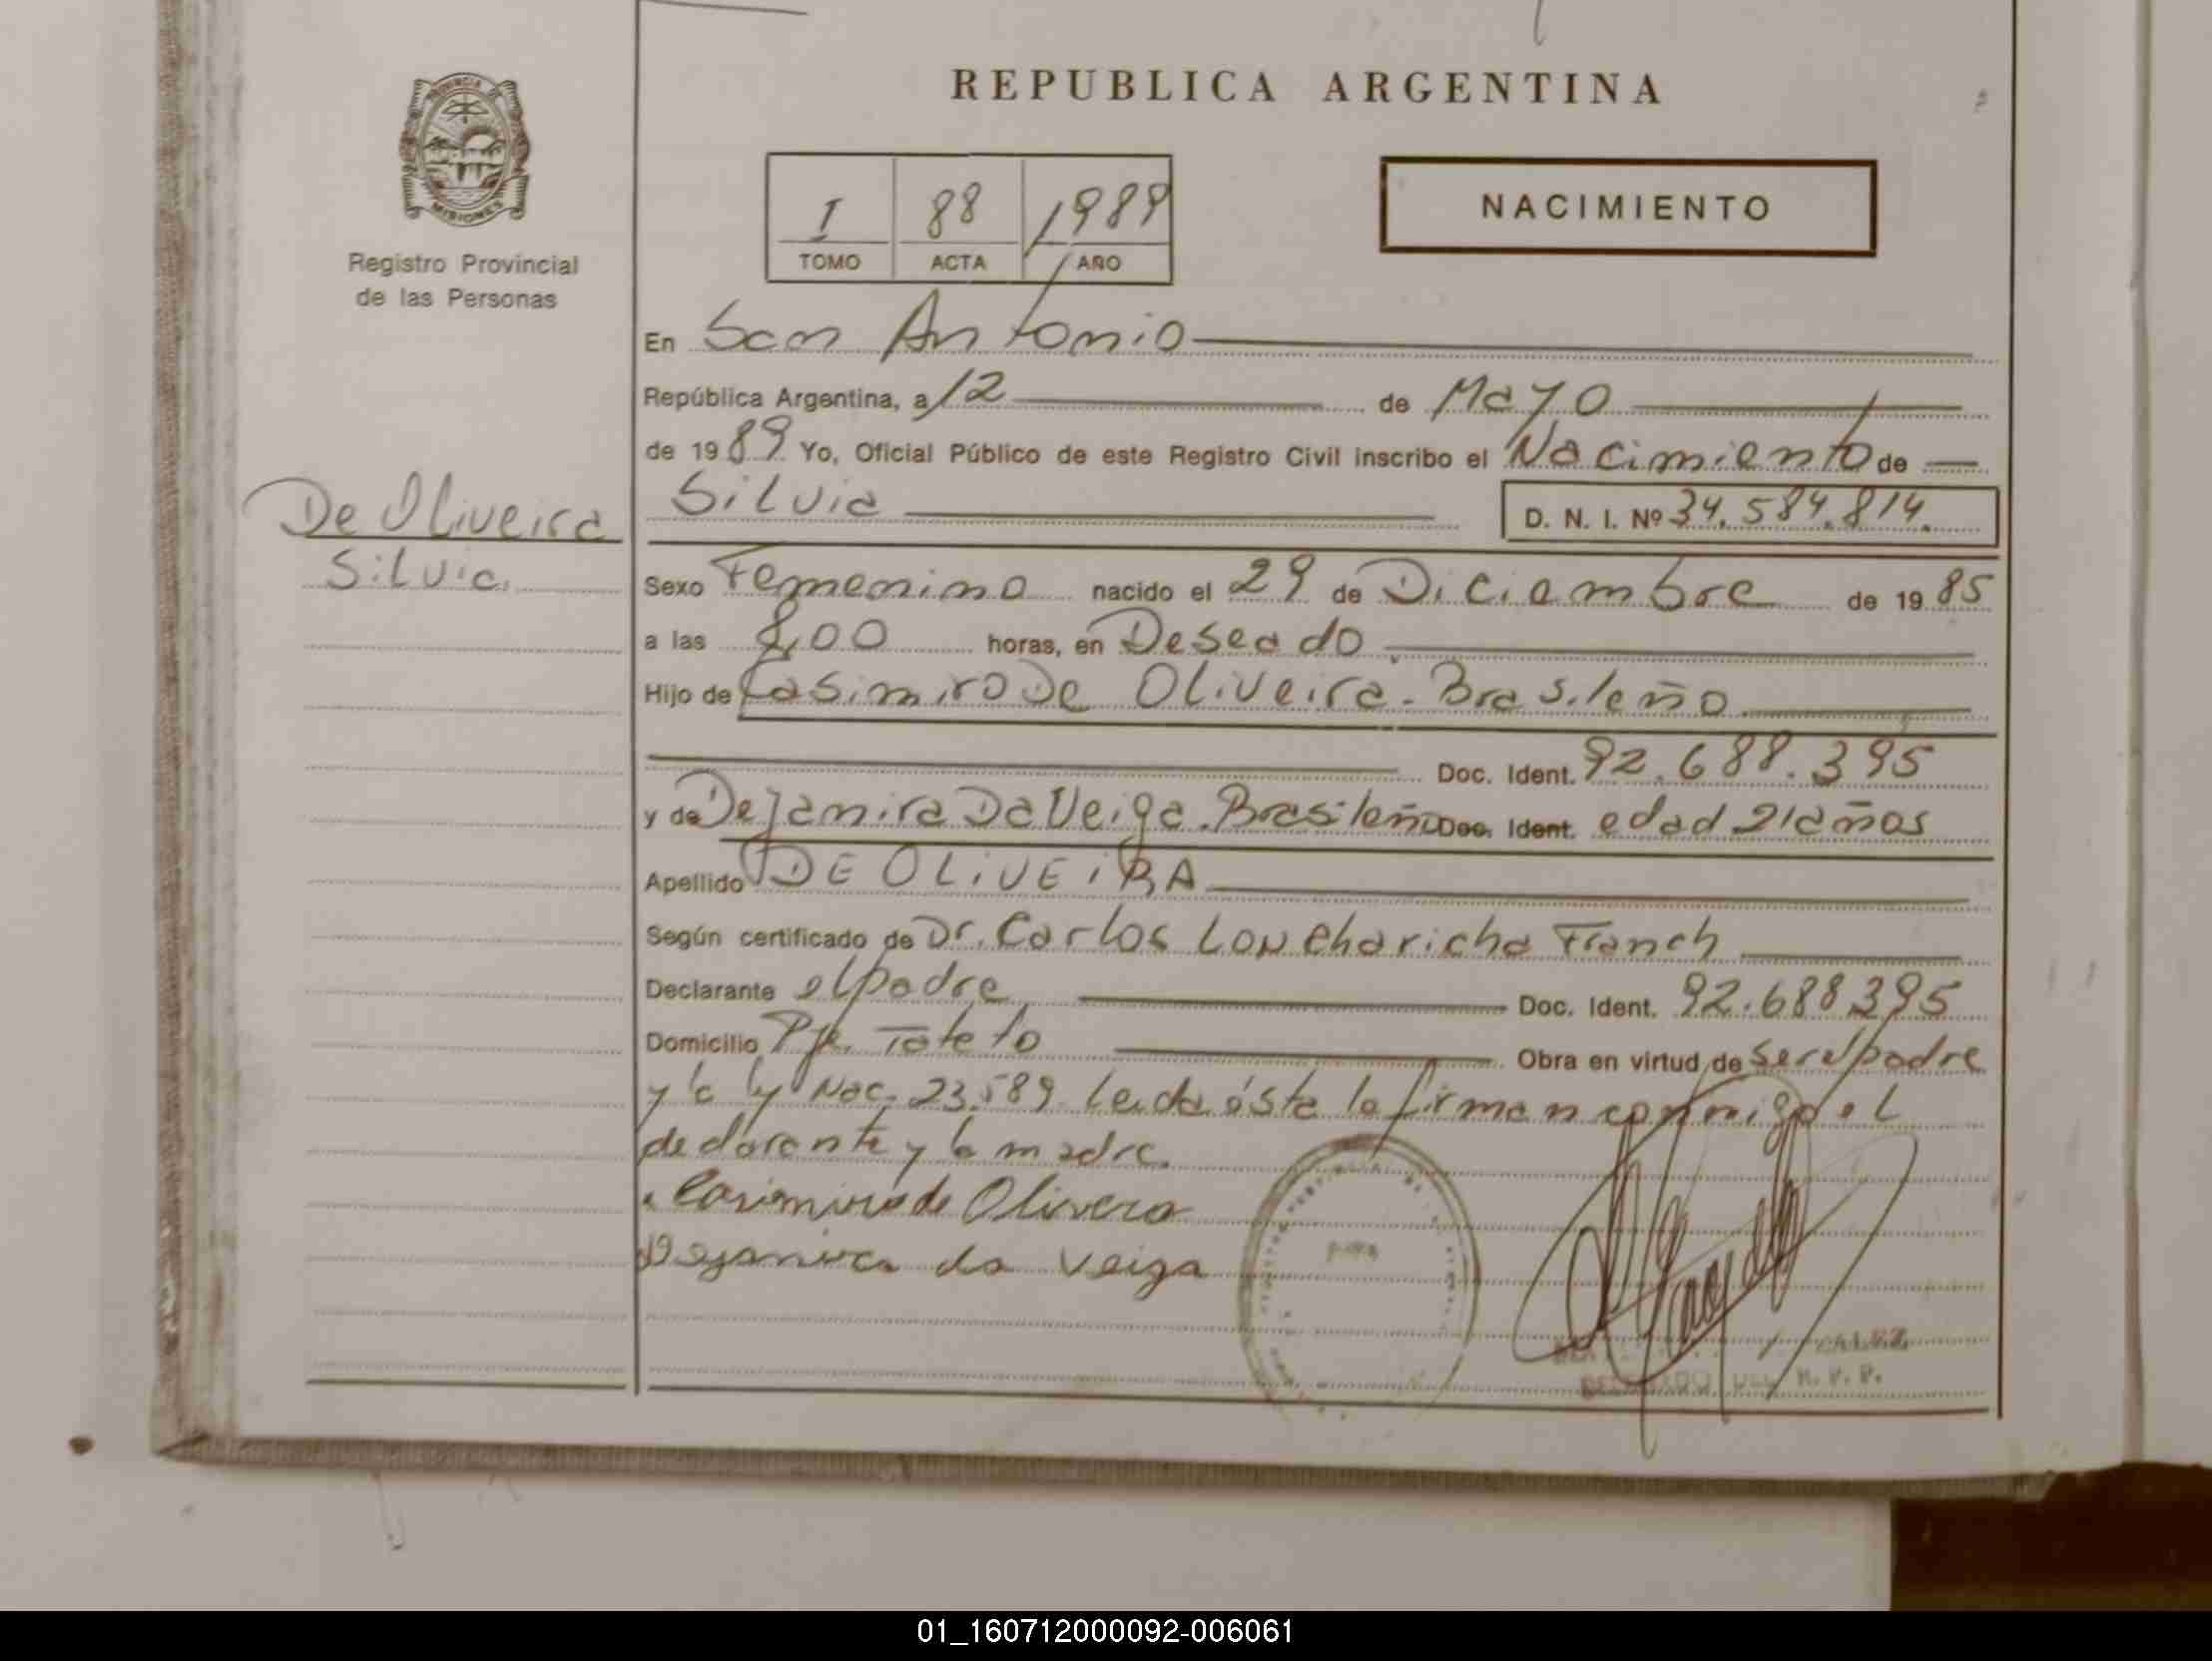 REPUBLICA ARGENTINA
PROVINCIA DE
MISIONES
Registro Provincial
de las Personas
I 88 1989
TOMO ACTA AÑO
NACIMIENTO
En San Antonio
República Argentina, a 12 de Mayo
de 1989 Yo, Oficial Público de este Registro Civil inscribo el Nacimiento de
Silvia D. N. I. Nº 34.584.814.
De Oliveira
Silvia.
Sexo Femenino nacido el 29 de Diciembre de 1985
a las 8,00 horas, en Deseado
Hijo de Casimiro De Oliveira - Brasileño
Doc. Ident. 92.688.395
y de Dejamira Da Veiga. Brasileño Doc. Ident. edad 21 años
Apellido DE OLIVEIRA
Según certificado de Dr. Carlos Franch
Declarante el padre Doc. Ident. 92.688395
Domicilio Pje. Tateto Obra en virtud de Ser el padre
y la ley Nac. 23.589 leida ésta la firman conmigo el
declarante y la madre.
Casimiro de Olivera
Dejamira da Veiga
R. P. P.
01_160712000092-006061